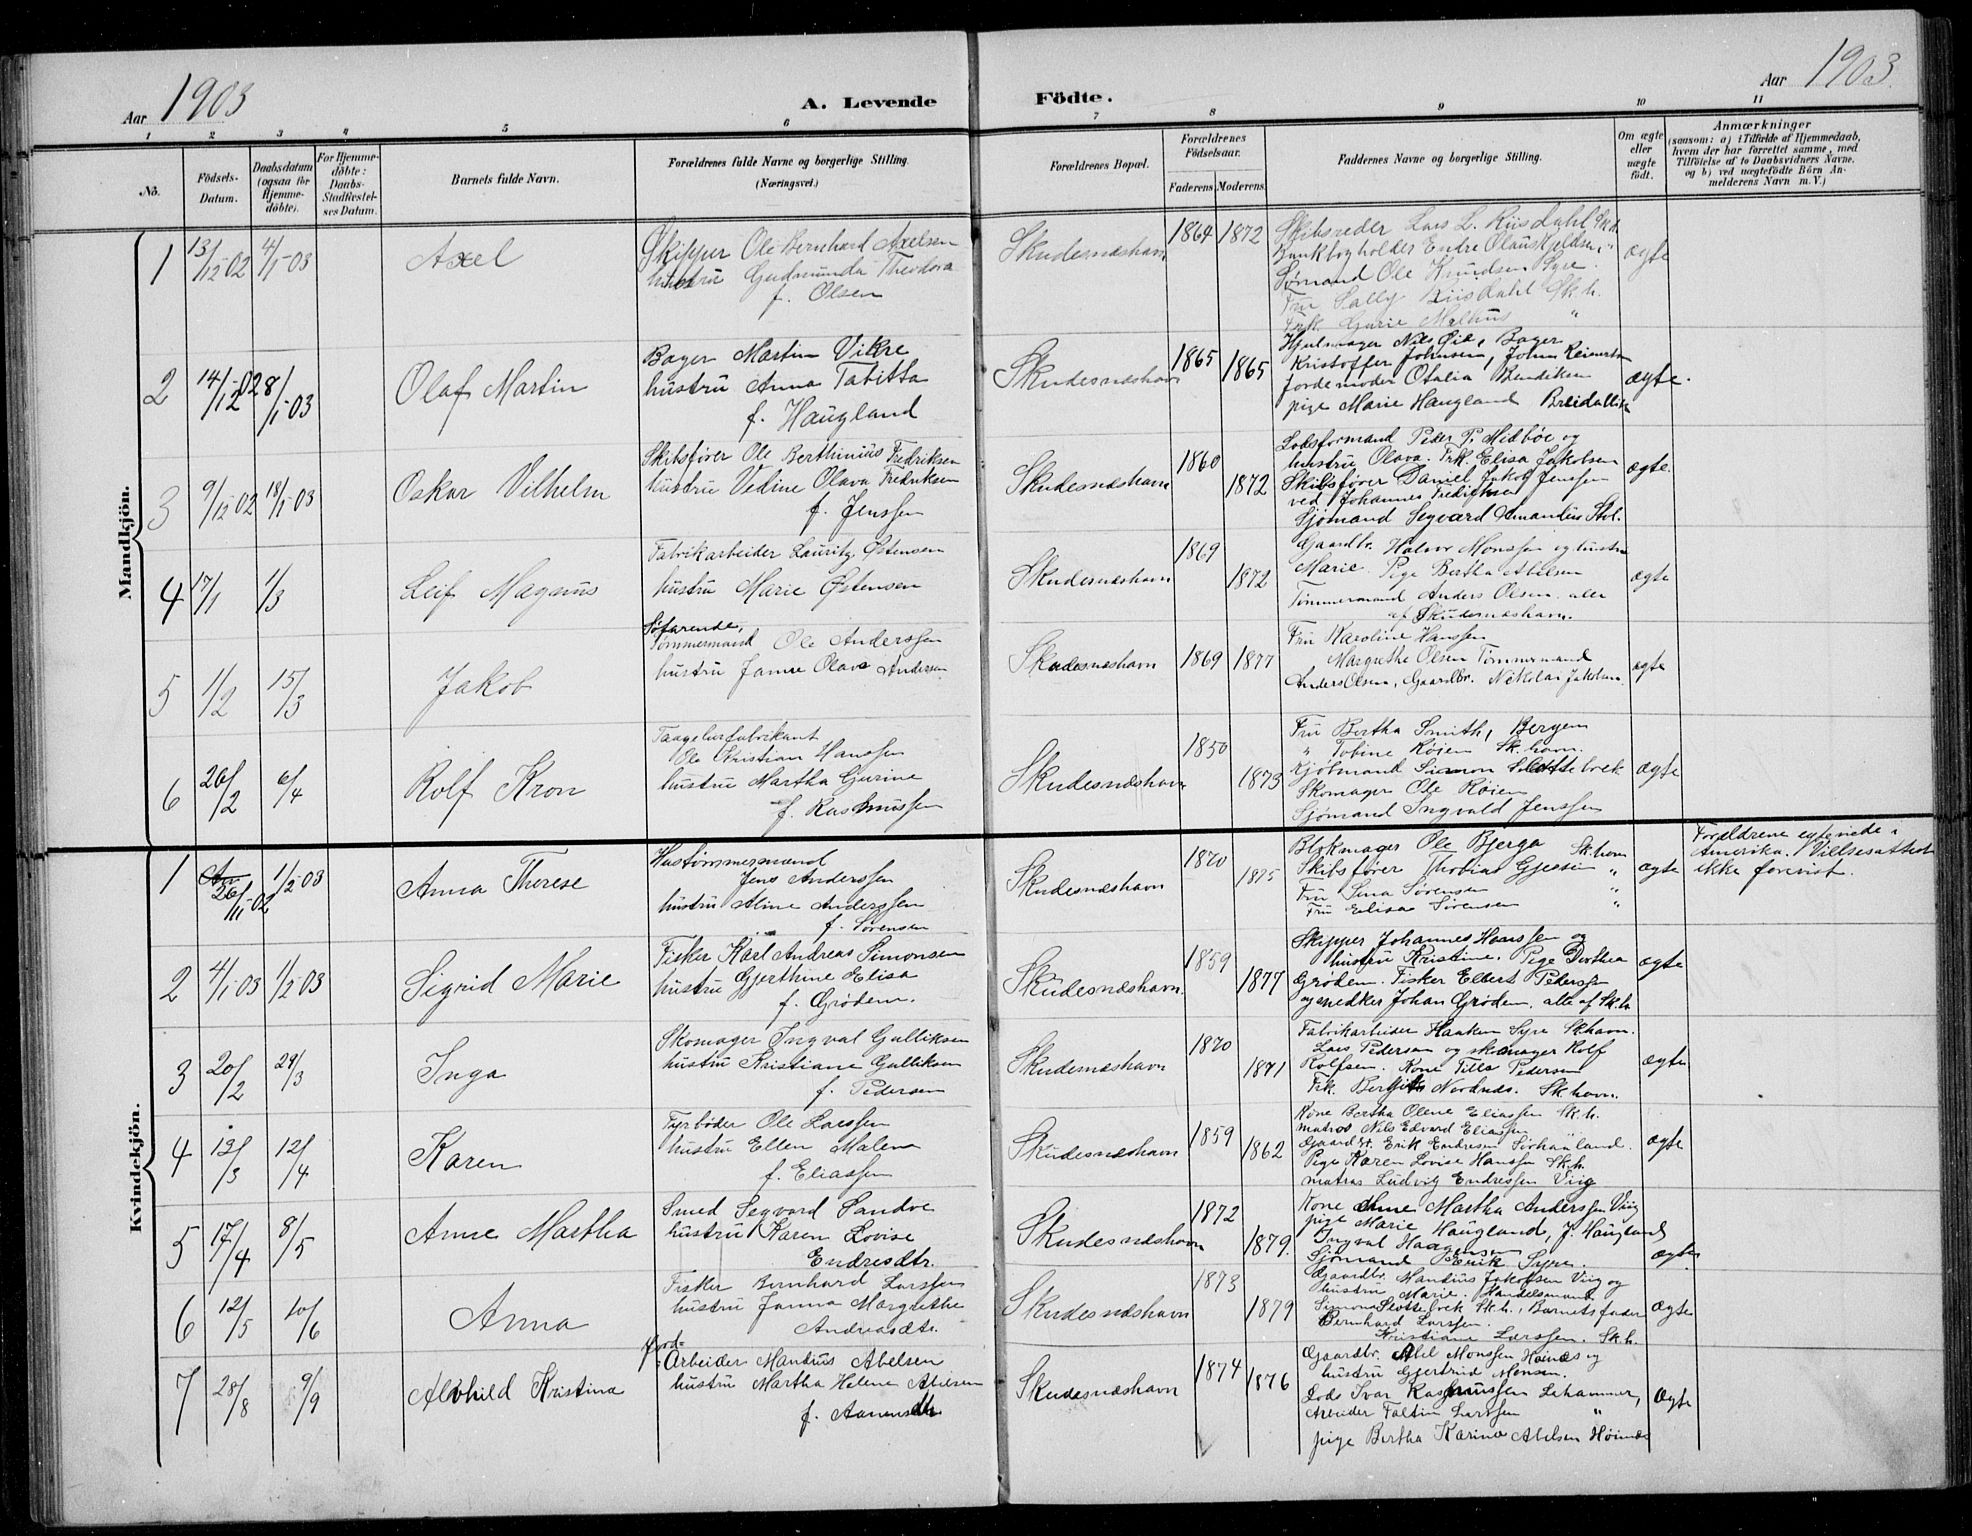 Aar 1903 A. Levende Födte. Aar 1903.
1 2 3 4 5 6 7 8 9 10 11
Nó. Födsels-Datum. Daabsdatum (ogsaa for Hjemme-döbte). For Hjemme-döbte: Daabs-Stadfæstel-ses Datum. Barnets fulde Navn. Forældrenes fulde Navne og borgerlige Stilling. (Næringsvei.) Forældrenes Bopæl. Forældrenes Födselsaar. Faderens Moderens Faddernes Navne og borgerlige Stilling. Om ægte eller uægte födt. Anmærkninger (saasom: a) i Tilfælde af Hjemmedaab, hvem der har forrettet samme, med Tilföielse af to Daabsvidners Navne, og b) ved uægtefödte Börn An-melderens Navn m. V.)
Mandkjön.
1 13/12-02 4/1-03 Axel
Skipper Ole Bernhard Axelsen
hustru Gudmunda Theodora
f. Olsen
Skudesnæshavn 1864 1872
Skibsreder Lars L. Riisdahl Sk.h.
Bankbogholder Endre Olaus Kjeldsen "
Sømand Ole Knudsen Syre.
Fru Sally Riisdahl Sk.h.
Frk. Gurie Melhus "
ægte
2 14/12-02 8/1-03 Olaf Martin
Bager Martin Vikre
hustru Anna Tabitta
f. Haugland
Skudesnæshavn 1865 1865
Hjulmager Nils Øie, Bager
Kristoffer Johnsen, John Reiersen
Jordemoder Otalia Bendiksen
pige Marie Haugland
ægte.
3 9/12-02 18/1-03 Oskar Vilhelm
Skibsfører Ole Berthinius Fredriksen
hustru Vedine Olava Fredriksen
f. Jenssen
Skudesnæshavn 1860 1872
Lodsformand Peder P. Midbøe og
hustru Olava. Frk. Elisa Jakobsen
Skibsfører Daniel Jakob Jenssen
ved Johannes Fredriksen
Sjømand Segvard Amandius
ægte.
4 17/1 1/3 Leif Magnus
Fabrikarbeider Lauritz Østensen
hustru Marie Østensen
Skudesnæshavn 1869 1872
Gaardbr. Halvor Monssen og hustru
Marie. Pige Bertha Abelsen
Tømmermand Anders Olsen. alle
af Skudesnæshavn.
ægte
5 1/2 15/3 Jakob
Søfarende,
Tømmermand Ole Anderssen
hustru Janne Olava Andersen
Skudesnæshavn 1869 1877
Fru Karoline Hanssen
Margrethe Olsen Tømmermand
Anders Olsen, Gaardbr. Nikolai Jakobsen
ægte
6 26/2 6/4 Rolf Kron
Taagelurfabrikant
Ole Kristian Hanssen
hustru Martha Gurine
f. Rasmussen
Skudesnæshavn 1850 1873
Fru Bertha Smith, Bergen
" Tobine Røien Sk.havn.
Kjøbmand Simon Slottebrek
Skomager Ole Røien
Sjømand Ingvald Jenssen
ægte
Kvindekjön.
1 26/11-02 1/2-03 Anna Therese
Hustømmermand
Jens Anderssen
hustru Aline Anderssen
f. Sørensen
Skudesnæshavn 1870 1875
Blokmager Ole Bjerga Sk.havn
Skibsfører Thobias Gjessen "
Fru Sina Sørensen "
Fru Elisa Sørensen "
ægte
Forældrene egteviede i
Amerika. Vielsesattest
ikke forevist.
2 4/1-03 1/2-03 Sigrid Marie
Fisker Karl Andreas Simonsen
hustru Gjerthine Elisa
f. Grødem.
Skudesnæshavn. 1859 1877
Skipper Johannes Hanssen og
hustru Kristine. Pige Dorthea
Grødem. Fisker Elbert Pederssen
og snedker Johan Grødem, alle af Sk.h.
ægte
3 20/2 29/3 Inga
Skomager Ingval Gulliksen
hustru Kristiane Gulliksen
f. Pedersen
Skudesnæshavn 1870 1871
Fabrikarbeider Haaken Syre Sk.havn.
Lars Pedersen og skomager Rolf
Rolfsen. Kone Tilla Pedersen
Frk. Bergite Nordnæs. Sk.havn.
ægte
4 13/3 12/4 Karen
Fyrbøder Ole Larssen
hustru Ellen Malene
f. Eliassen
Skudesnæshavn 1859 1862
Kone Bertha Olene Eliassen Sk.h.
matros Nils Edvard Eliassen
Gaardbr. Erik Endresen Sørhaaland.
Pige Karen Lovise Hanssen Sk.h.
matros Ludvig Endressen Viig
ægte
5 17/4 8/5 Anne Martha
Smed Segvard Sandve
hustru Karen Lovise
Endresdtr.
Skudesnæshavn 1872 1879.
Kone Anne Martha Anderssen Viig
pige Marie Haugland, J. Haugland
Ingval Haagensen
Sjømand Erik Syre.
ægte
6 12/5 10/6 Anna
Fisker Bernhard Larssen
hustru Janna Margrethe
Andreasdtr.
Skudesnæshavn 1873 1879
Gaardbr. Mandius Jakobsen Viig og
hustru Marie. Handelsmand
Simon Slottebrek Sk.h., Barnets fader
Bernhard Larssen.
Kristiane Larssen. Sk.h.
ægte
7 28/8 9/9 Alvhild Kristina
Jord-
Arbeider Mandius Abelsen
hustru Martha Helene Abelsen
f. Aanensdtr
Skudesnæshavn 1874 1876
Gaardbr. Abel Monssen Høinæs og
hustru Gjertrud Monsen.
Lods Ivar Rasmussen Lehammer,
Arbeider Faltin Larssen "
pige Bertha Karina Abelsen Høinæs
ægte